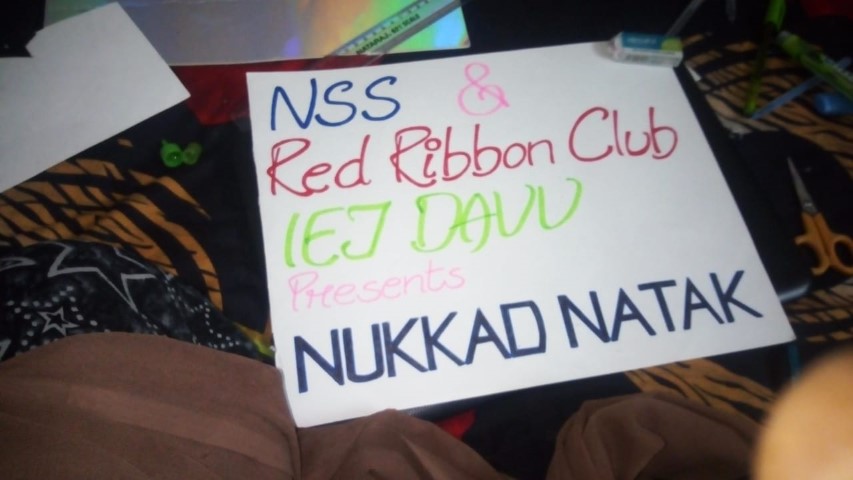 NSS &
Red Ribbon Club
IET DAVV
Presents
NUKKAD NATAK